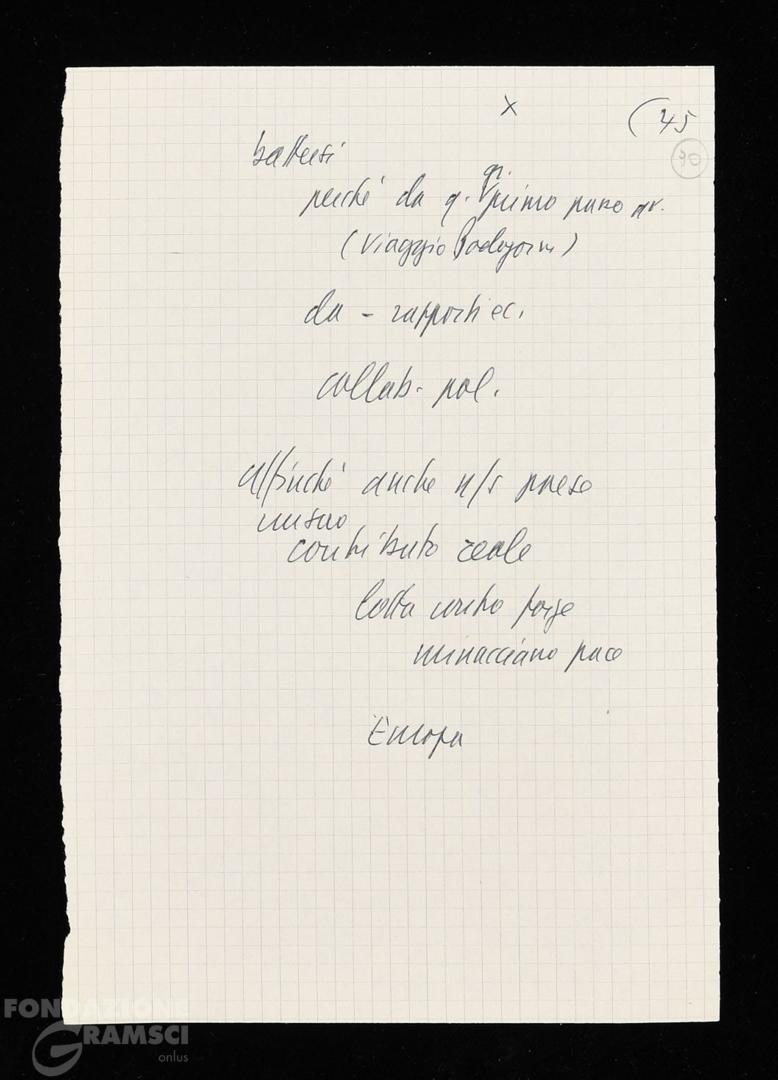 x
(45
90
battersi
perché da q. qr. primo passo av.
(viaggio Podgorni)
da - rapporti ec.
collab. pol.
affinché anche n/s paese
un suo
contributo reale
lotta contro forze
minacciano pace
Europa
FONDAZIONE
GRAMSCI
onlus